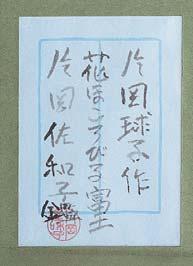 片岡球子作
花ほころびる富士
片岡佐和子鑑